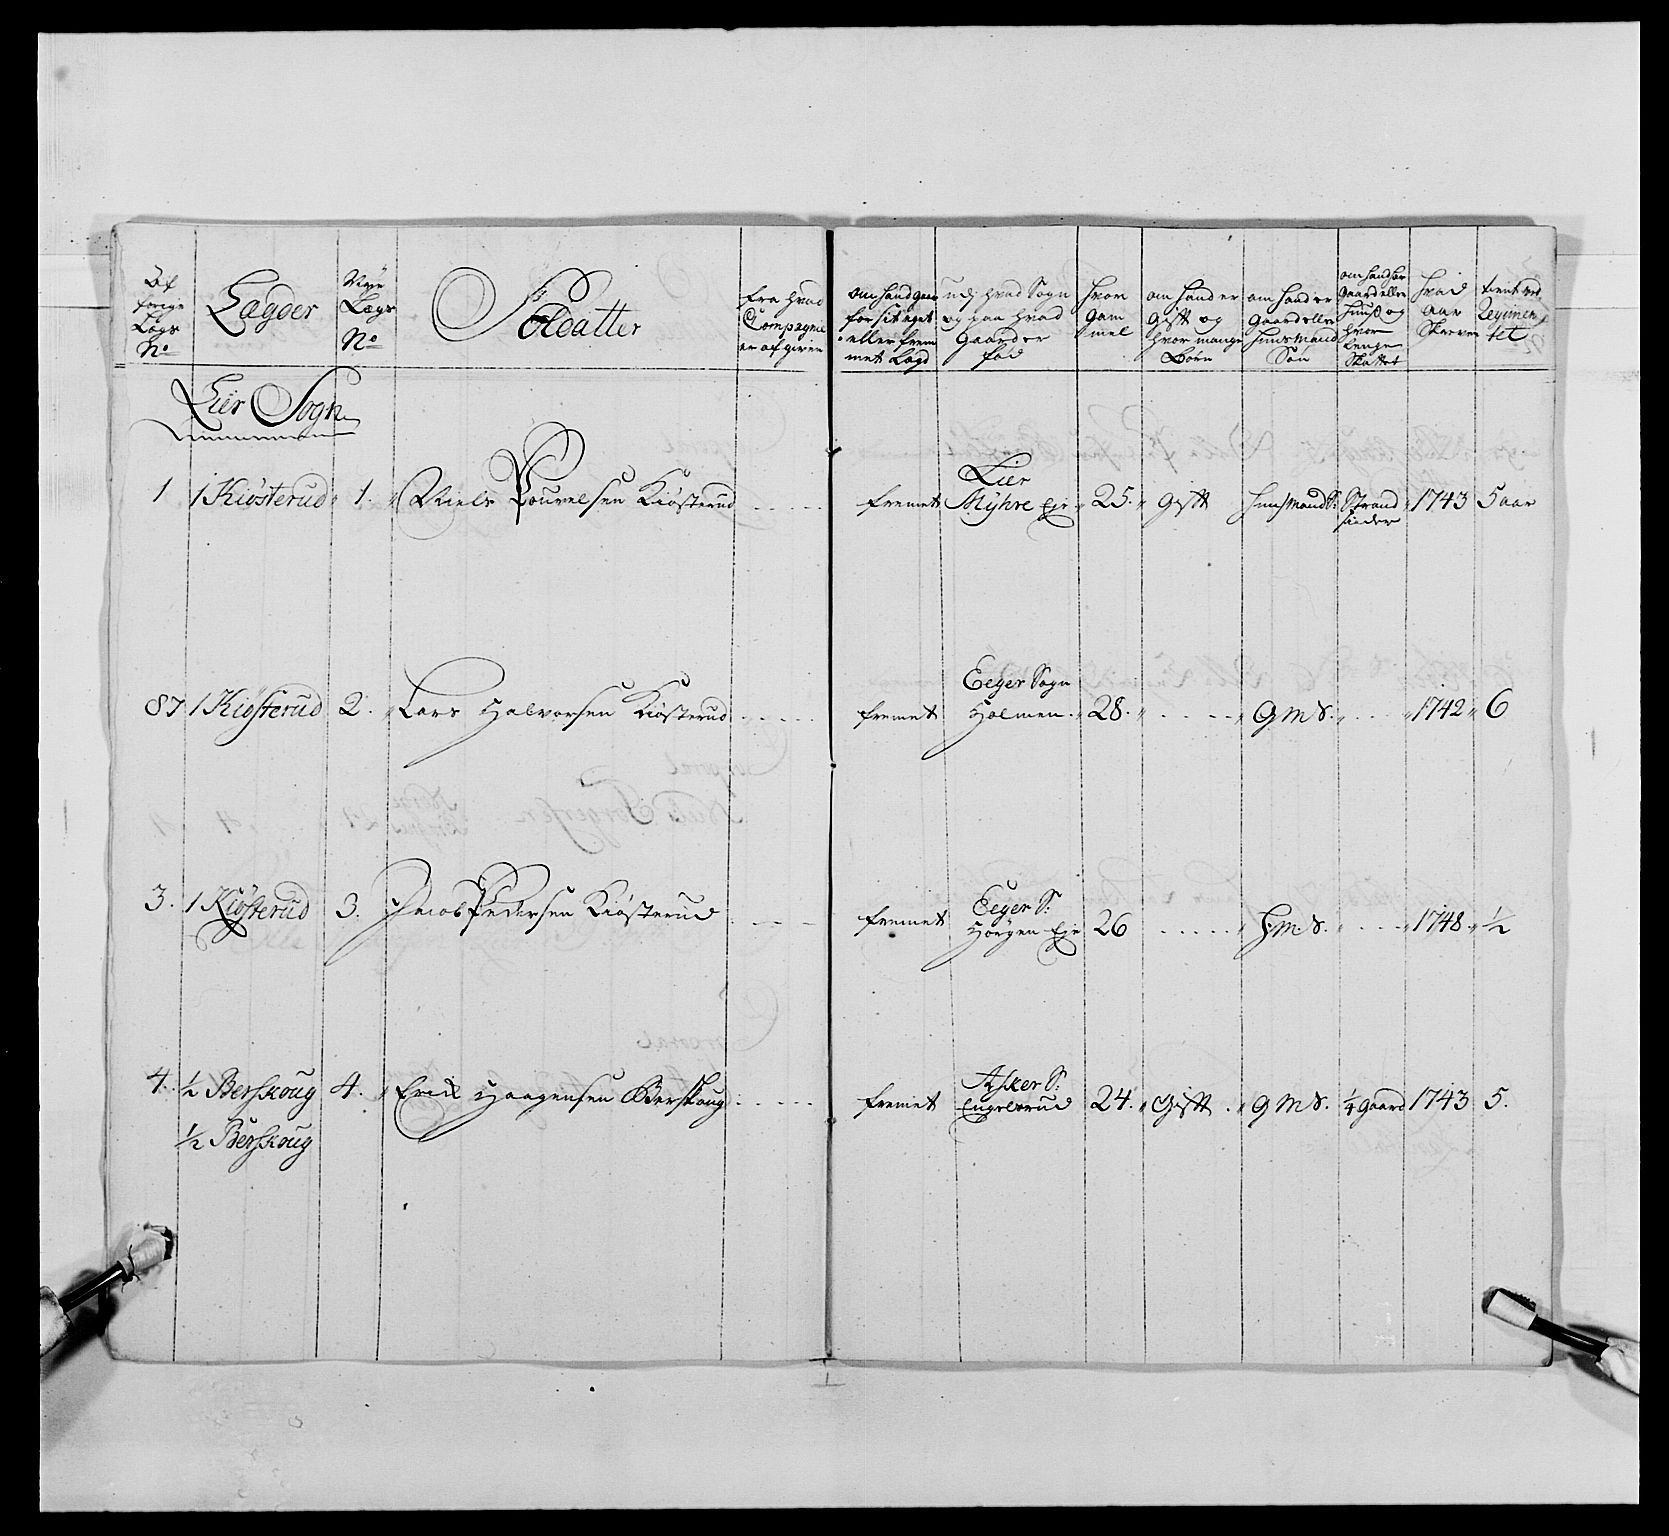 Af forige Lægs No
Lægder
Nÿe Lægs No
Soldatter
fra hvad Compagnie er afgiven
om hand gaar for sit eget eller frem met Lægd
udj hvad Sogn og paa hvad Gaard er fød
hvor Gam mel
om hand er Gift og hvor mange Børn
om hand er Gaard eller Huusmand Søn
om hand har Gaard eller Huus og hvor Lenge Skattet
hvad aar Skreven
tient ved Regimen tet
Lier Sogn
1 1 Kiøsterud 1. Niels Pouvelsen Kiøsterud ..... fremet Lier Mÿhre Eje 25. Gift HuusmandS: Strand sidder 1743 5 aar
87 1 Kiøsterud 2. Lars Halvorsen Kiøsterud ..... fremet Eeger Sogn Holmen 28. ..... G M S. .... 1742 6
3. 1 Kiøsterud 3. Jacob Pedersen Kiøsterud .... fremet Eeger S: Horgen Eje 26 ..... H. M. S. .... 1748 ½
4. ½ Berskoug 4. Erick Haagensen Berskoug ..... fremet Asker S: Engelsrud 24. Gift G M S. ¼ Gaard 1743 5.
½ Berskoug